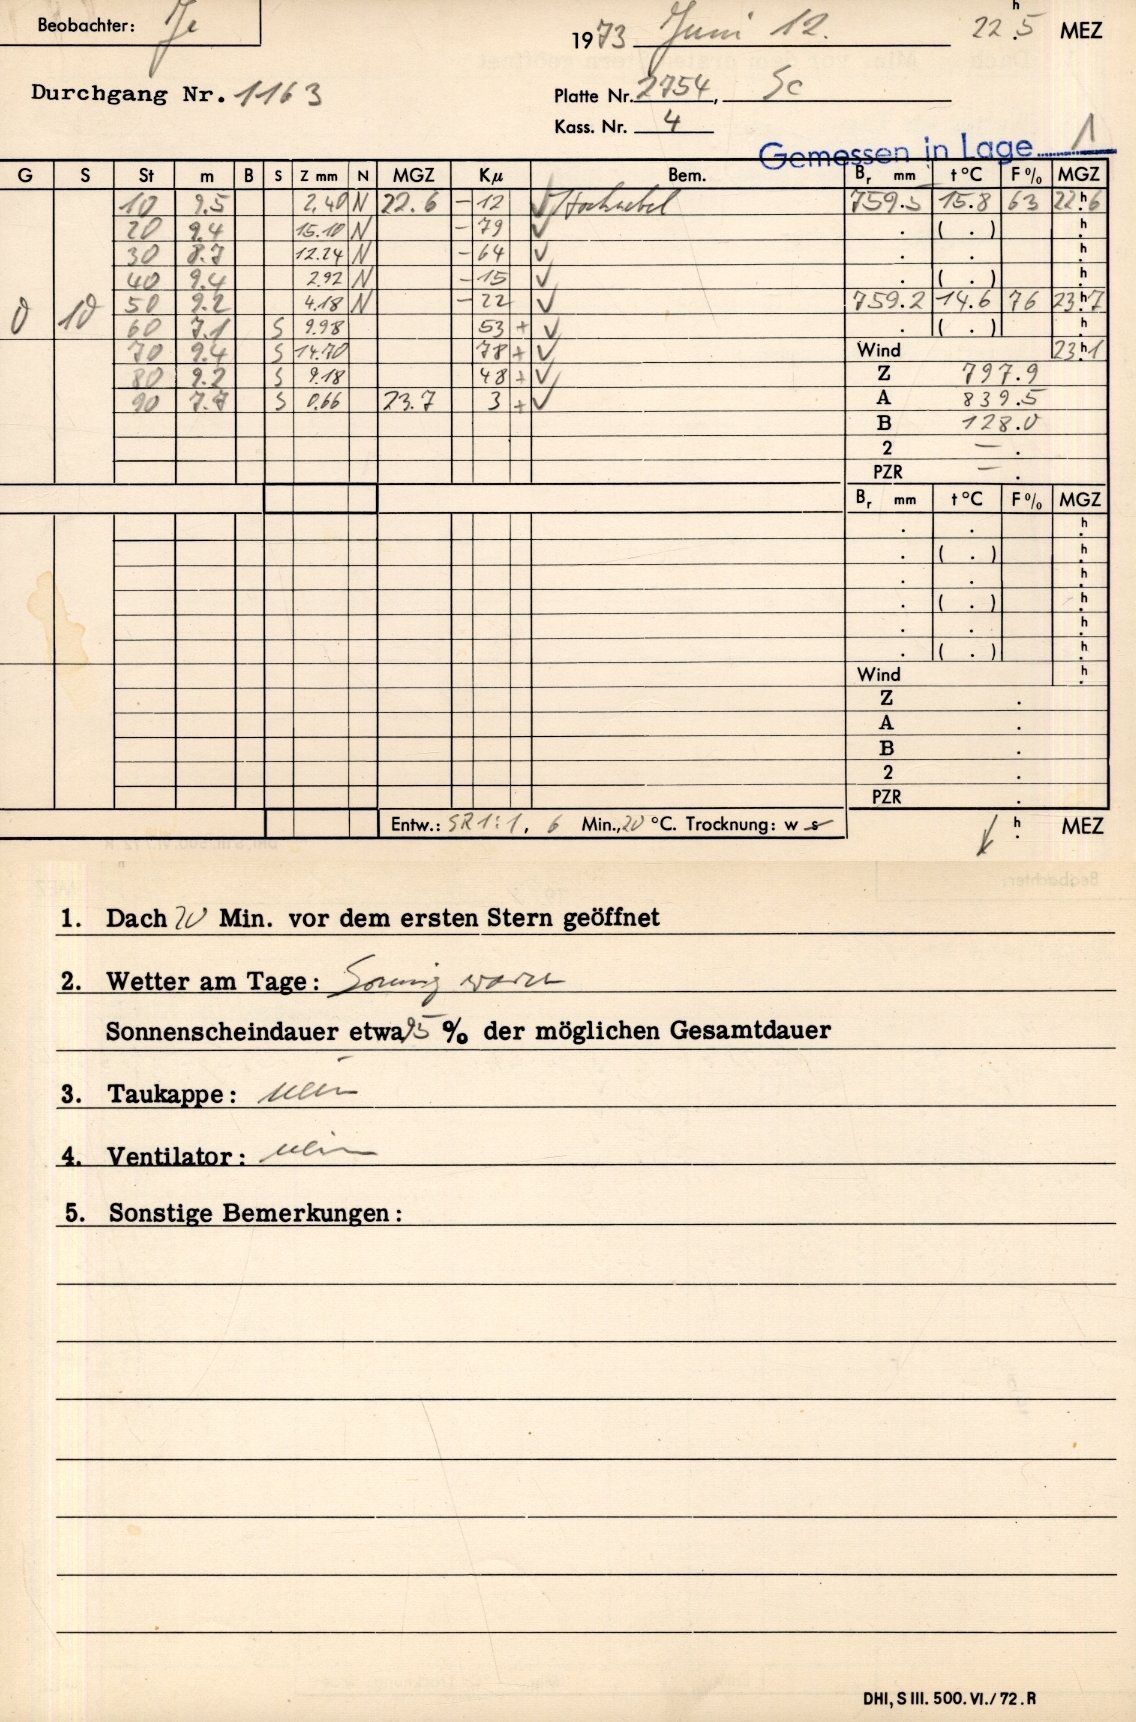 Beobachter: Je
1973 Juni 12. 22.5 h MEZ
Durchgang Nr. 1163
Platte Nr. 2754, Sc
Kass. Nr. 4
Gemessen in Lage 1
G S St m B S Z mm N MGZ Kμ Bem. Br mm t °C F % MGZ
10 9.5 2.40 N 22.6 -12 ✓ Hochnebel 759.5 15.8 63 22.h6
20 9.4 15.10 N -79 ✓ . ( . ) .h
30 8.7 12.24 N -64 ✓ . . .h
40 9.4 2.92 N -15 ✓ . ( . ) .h
0 10 50 9.2 4.18 N -22 ✓ 759.2 14.6 76 23.h7
60 7.1 S 9.98 53 + ✓ . ( . ) .h
70 9.4 S 14.70 78 + ✓ Wind 23.h1
80 9.2 S 9.18 48 + ✓ Z 797.9
90 7.7 S 0.66 23.7 3 + ✓ A 839.5
B 128.0
2 – .
PZR – .
Br mm t °C F % MGZ
. . .h
. ( . ) .h
. . .h
. ( . ) .h
. . .h
. ( . ) .h
Wind .h
Z .
A .
B .
2 .
PZR .
Entw.: SR 1:1, 6 Min., 20 °C. Trocknung: w s .h MEZ
1. Dach 20 Min. vor dem ersten Stern geöffnet
2. Wetter am Tage: Sonnig warm
Sonnenscheindauer etwa 95 % der möglichen Gesamtdauer
3. Taukappe: nein
4. Ventilator: nein
5. Sonstige Bemerkungen:
DHI, S III. 500. VI./72. R